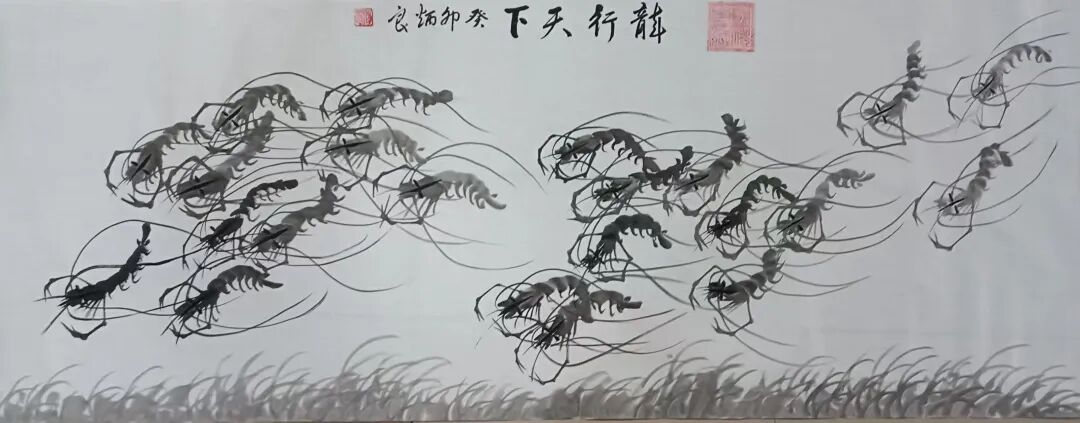 龍行天下 癸卯炳良